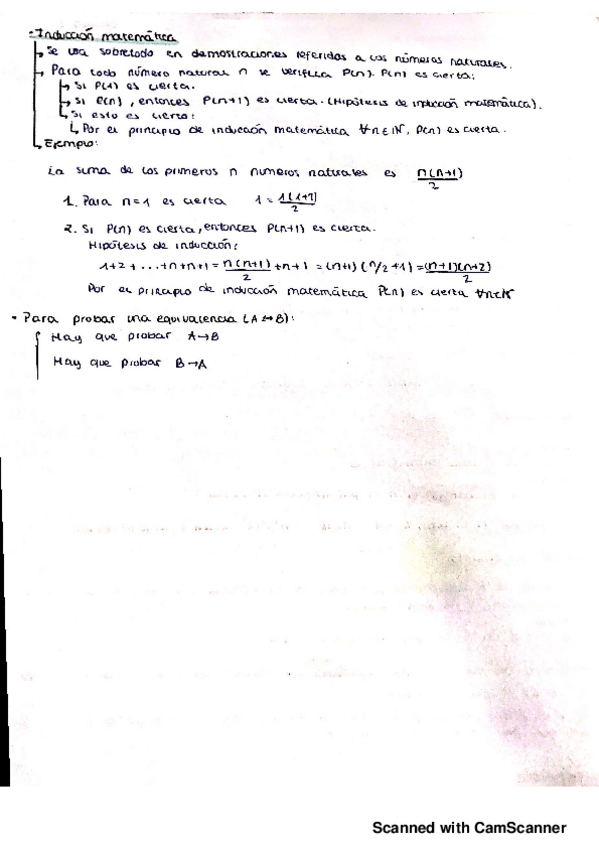 - Inducción matemática
Se usa sobretodo en demostraciones referidas a los números naturales.
Para todo número natural n se verifica P(n). P(n) es cierta:
Si P(1) es cierta.
Si P(n), entonces P(n+1) es cierta. (Hipótesis de inducción matemática).
Si esto es cierto:
Por el principio de inducción matemática ∀n∈ℕ, P(n) es cierta.
Ejemplo:
La suma de los primeros n numeros naturales es n(n+1)/2
1. Para n=1 es cierta 1 = 1(1+1)/2
2. Si P(n) es cierta, entonces P(n+1) es cierta.
Hipótesis de inducción:
1+2+...+n+n+1 = n(n+1)/2 + n+1 = (n+1)(n/2+1) = (n+1)(n+2)/2
Por el principio de inducción matemática P(n) es cierta ∀n∈ℕ
• Para probar una equivalencia (A↔B):
Hay que probar A→B
Hay que probar B→A
Scanned with CamScanner